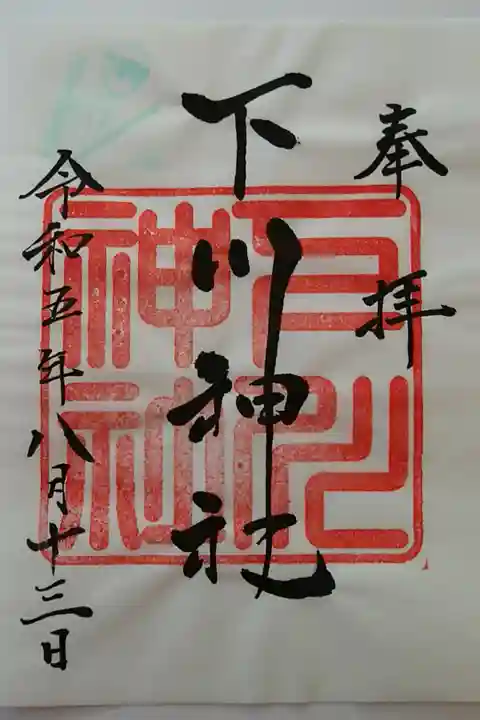 奉拝
下川神社
令和五年八月十三日